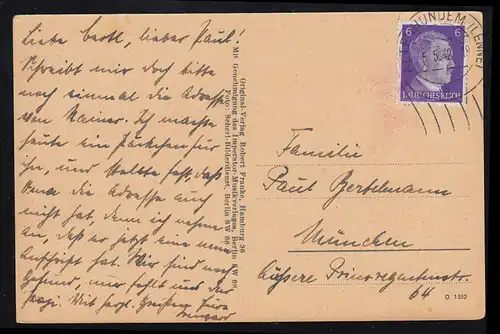 Liebe Bertl, lieber Paul!
Schreibt mir doch bitte
noch einmal die Adresse
von Rainer. Ich machte
heute ein Päckchen für
ihn, und stellte fest, daß
Oma die Adresse auch
nicht hat, denn ich nehme
an, daß er jetzt eine neue
Anschrift hat. Wir sind noch
gesund, nur fehlt uns der
Mit herzl. Grüßen Eure
Original-Verlag Robert Franke, Hamburg 36
Mit Genehmigung des Imperator-Musikverlages, Berlin SW 68
Foto: Scherl-Bilderdienst, Berlin SW 68
6 6
DEUTSCHES REICH
(LENNE)
Familie
Paul Bertelmann
München
Äussere Prinzregentenstr.
64
O 1353